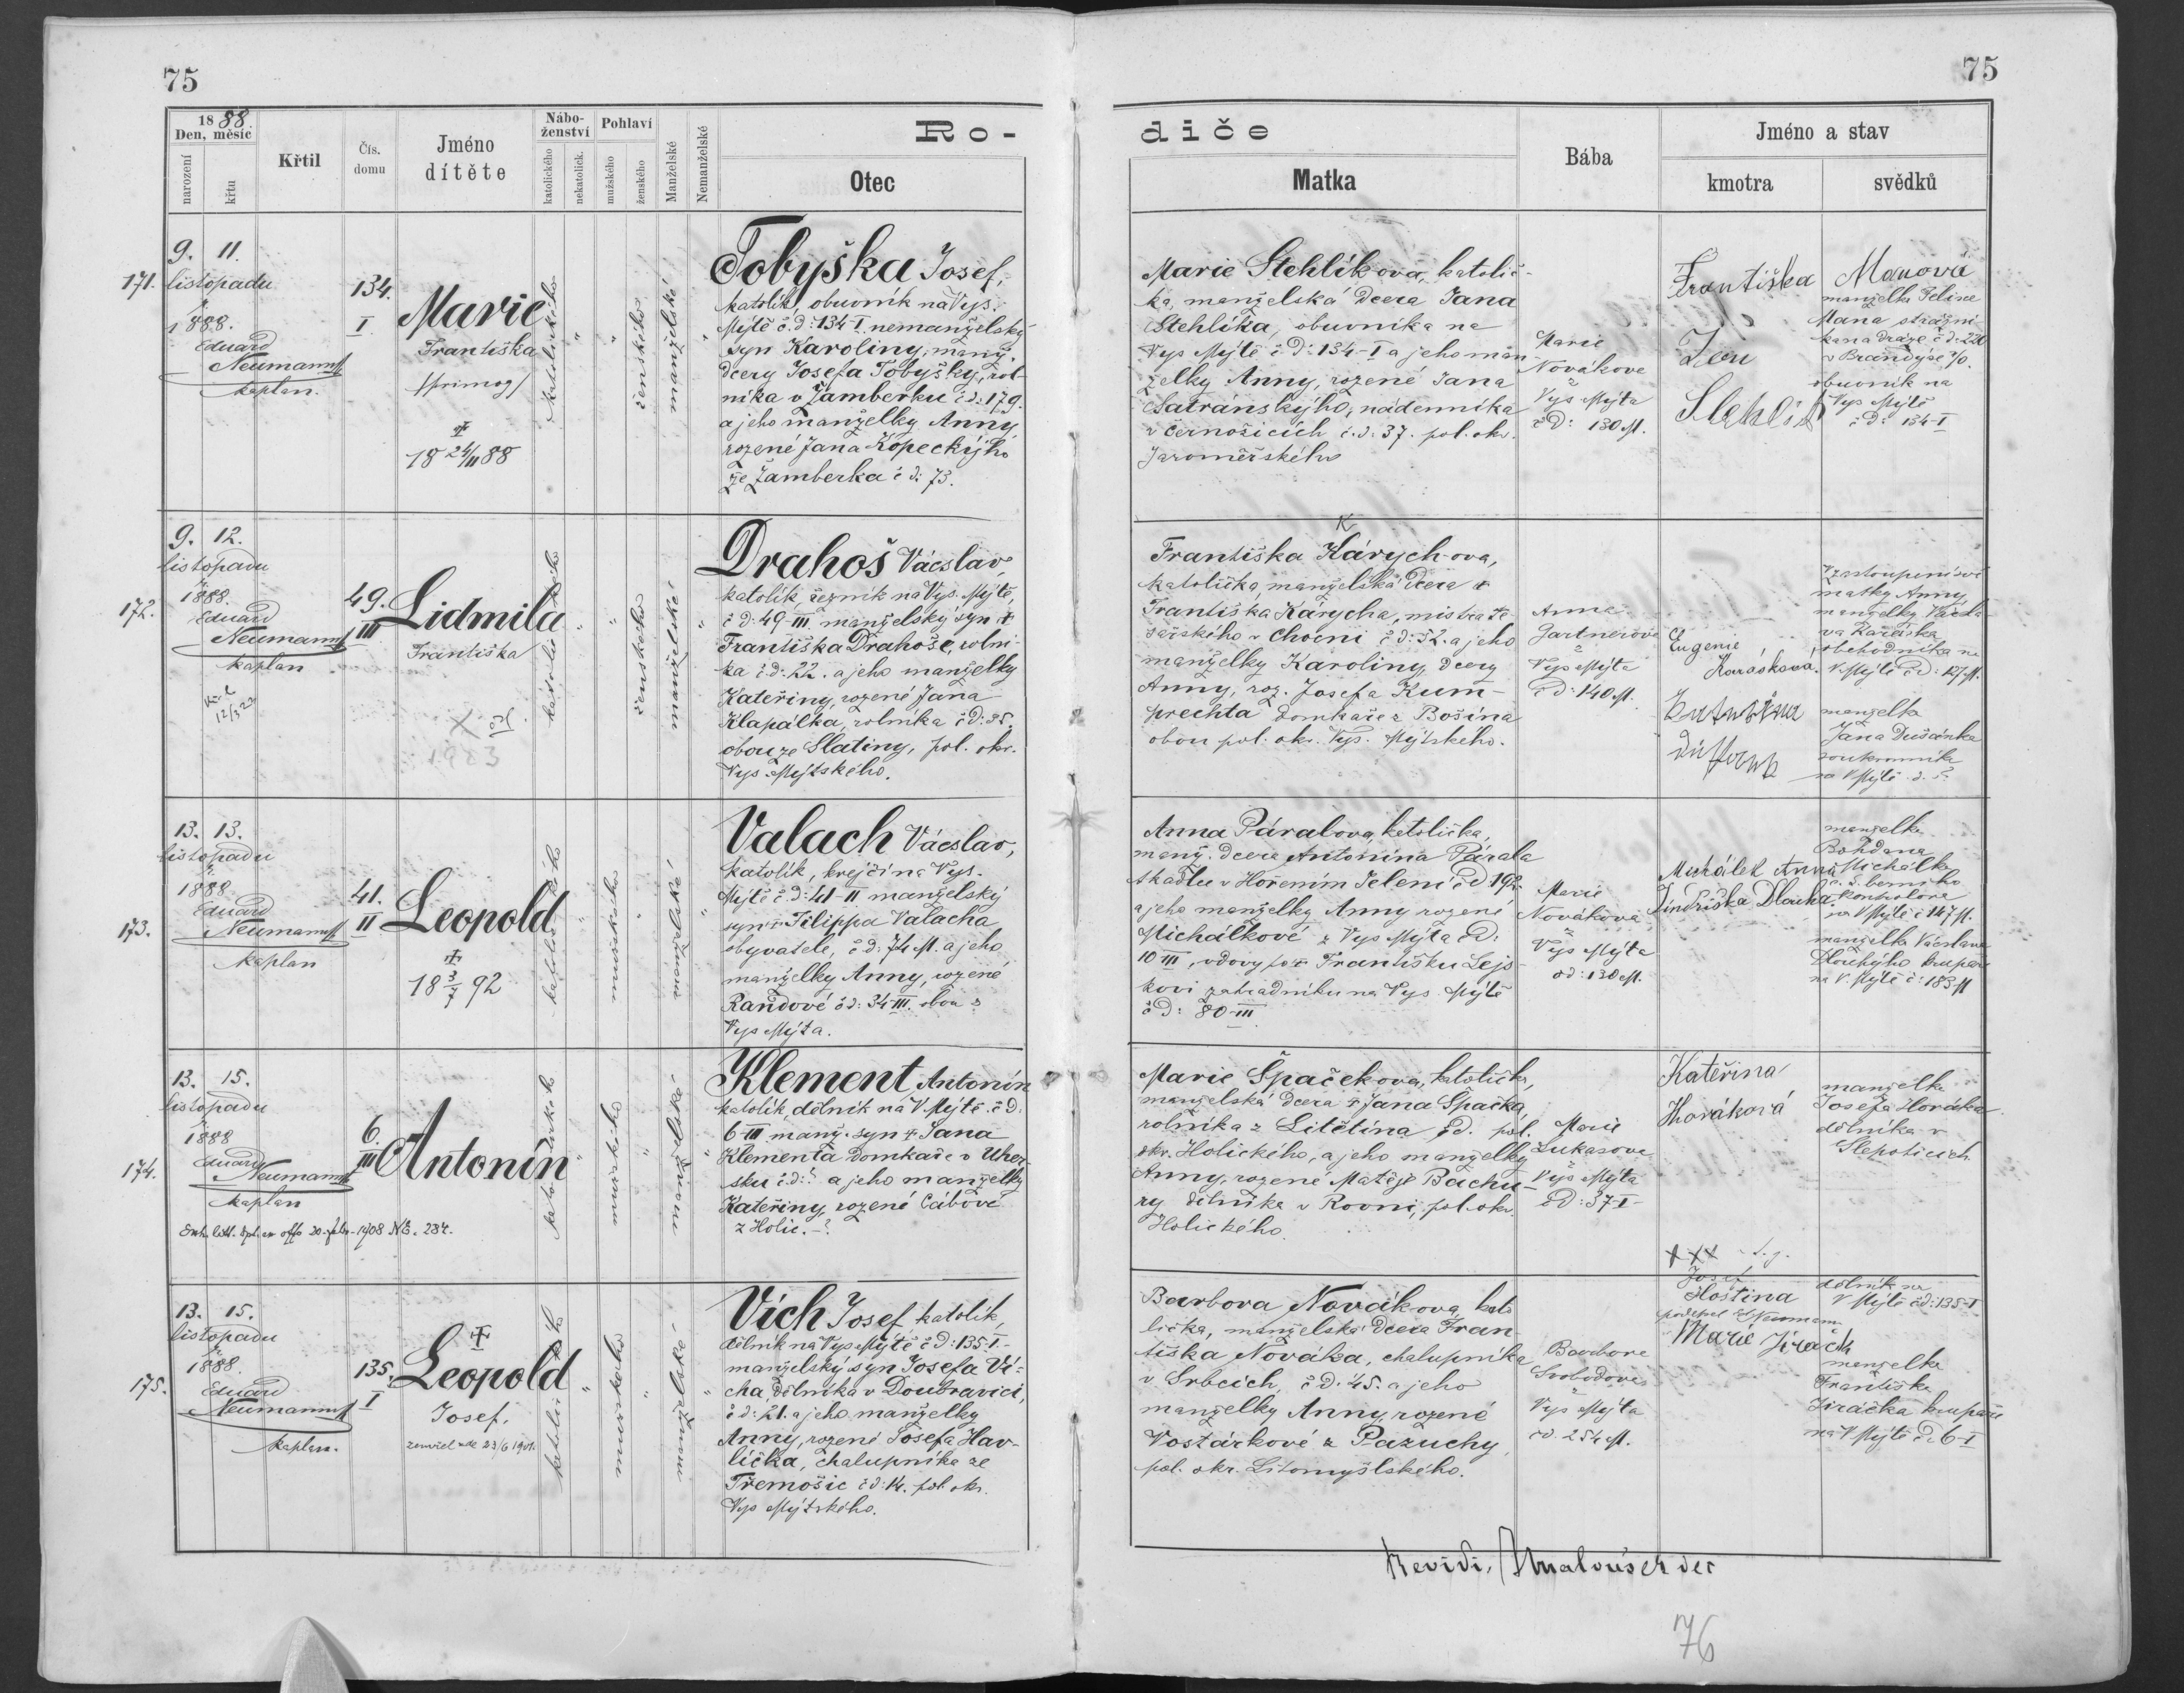 75
75
1888
Den, měsíc
narození
křtu
Křtil
Čís. domu
Jméno dítěte
Náboženství
katolického
nekatolick.
Pohlaví
mužského
ženského
Manželské
Nemanželské
Ro-
diče
Otec
Matka
Bába
Jméno a stav
kmotra
svědků
171.
9. 11.
listopadu
1888.
Eduard
Neumann
kaplan.
134.
I
Marie
Františka
/primog/
18 24/11 88
katolického
"
"
ženského
manželské
"
Tobyška Josef,
katolík, obuvník na Vys.
Mýtě č.d: 134-I nemanželský
syn Karoliny, manž.
dcery Josefa Tobyšky, rol-
níka v Žamberku č.d: 179.
a jeho manželky Anny
rozené Jana Kopeckýho
ze Žamberka č d: 73.
Marie Stehlíkova, katolič-
ka, manželská dcera Jana
Stehlíka, obuvníka na
Vys Mýtě č d: 134-I a jeho man
želky Anny, rozené Jana
Satránskýho, nádenníka
v Černožicích č.d: 37. pol. okr.
Jaroměřského
Marie
Novákova
z
Vys Mýta
čd: 130 M.
Františka
Jan
Stehlík
Manová
manželka Felixe
Mana strážní-
ka na dráze č d: 220
v Brandýse n/O.
obuvník na
Vys Mýtě
č d: 134-I
172.
9. 12.
listopadu
1888.
Eduard
Neumann
kaplan
49.
III
Lidmila
Františka
1983
"
"
ženského
manželské
"
Drahoš Václav,
katolík, řezník na Vys. Mýtě,
č d: 49-III. manželský syn †
Františka Drahoše, rolní-
ka č.d: 22. a jeho manželky
Kateřiny, rozené Jana
Klapálka, rolníka č d: 35.
obou ze Slatiny, pol. okr.
Vys. Mýtského.
K
Františka Kárych-ova,
katolička, manželská dcera †
Františka Kárycha, mistra te-
sařského v Chocni č d: 52. a jeho
manželky Karoliny, dcery
Anny, roz. Josefa Kum-
prechta domkaře z Bošína
obou pol. okr. Vys. Mýtského.
Anna
Gartnerova
z
Vys Mýta
č d: 140 M.
Eugenie
Karáskova.
V zastoupení své
matky Anny,
manželky Václa-
va Karáska
obchodníka na
V. Mýtě č d: 127 M.
manželka
Jana Dušánka
soukromníka
na V Mýtě
173.
13. 13.
listopadu
1888
Eduard
Neumann
kaplan
41.
II
Leopold
18 3/7 92
katolického
"
mužského
"
manželské
"
Valach Václav,
katolík, krejčí na Vys.
Mýtě č.d: 41-II manželský
syn † Filippa Valacha
obyvatele, č d: 74 M. a jeho
manželky Anny, rozené
Randové č d: 34-III. obou z
Vys Mýta.
Anna Páralova, katolička,
manž. dcera Antonína Párala
tkadlce v Hořením Jelení č d 192.
a jeho manželky Anny rozené
Michálkové z Vys Mýta čd:
10 III, vdovy po † Františku Lejs-
kovi zahradníku na Vys. Mýtě
č d: 80-III
Marie
Nováková
z
Vys Mýta
čd: 130 M.
Michálek Anna
Jindřiška Dlouhá
manželka
Bohdana
Michálka
c. k. berního
kontrolora
na V Mýtě č 147 M.
manželka Václava
Dlouhýho krupaře
na V. Mýtě č: 183 M
174.
13. 15.
listopadu
1888
Eduard
Neumann
kaplan
6.
III
Antonín
"
mužského
"
manželské
"
Klement Antonín
katolík, dělník na V Mýtě č d:
6-III manž. syn † Jana
Klementa domkaře v Uher-
sku č.d: ? a jeho manželky
Kateřiny, rozené Cábové
z Holic. - ?
Marie Špačekova, katolička,
manželská dcera † Jana Špačka
rolníka z Litětína č d. pol.
okr. Holického, a jeho manželky
Anny, rozené Matěje Bachu-
ry dělníka v Rovni, pol. okr
Holického.
Marie
Lukasova
z
Vys Mýta
č d: 37-I
Kateřina
Horáková
manželka
Josefa Horáka
dělníka v
Slepoticích
175.
13. 15.
listopadu
1888.
Eduard
Neumann
kaplan.
135.
I
Leopold
Josef.
zemřel 23/6 1901.
"
mužského
"
manželské
"
Vích Josef katolík,
dělník na Vys Mýtě č d: 135-I-
manželský syn Josefa Ví-
cha dělníka v Doubravici,
č d: 21. a jeho manželky
Anny, rozené Josefa Hav-
lička, chalupníka ze
Třemošic č d: 14. pol. okr.
Vys Mýtského.
Barbora Novákova, kato
lička, manželská dcera Fran
tiška Nováka, chalupníka
v Srbcích, č d. 45. a jeho
manželky Anny, rozené
Vostárkové z Pazuchy,
pol. okr. Litomyšlského.
Barbora
Svobodova
z
Vys Mýta
č d. 254 M.
xxx
Josef
Hoština
podepsal Ed Neumann
Marie Jiraček
dělník na
V Mýtě č d: 135-I
manželka
Františka
Jiráčka krupaře
na V Mýtě č. 6-I
Revidi,
76